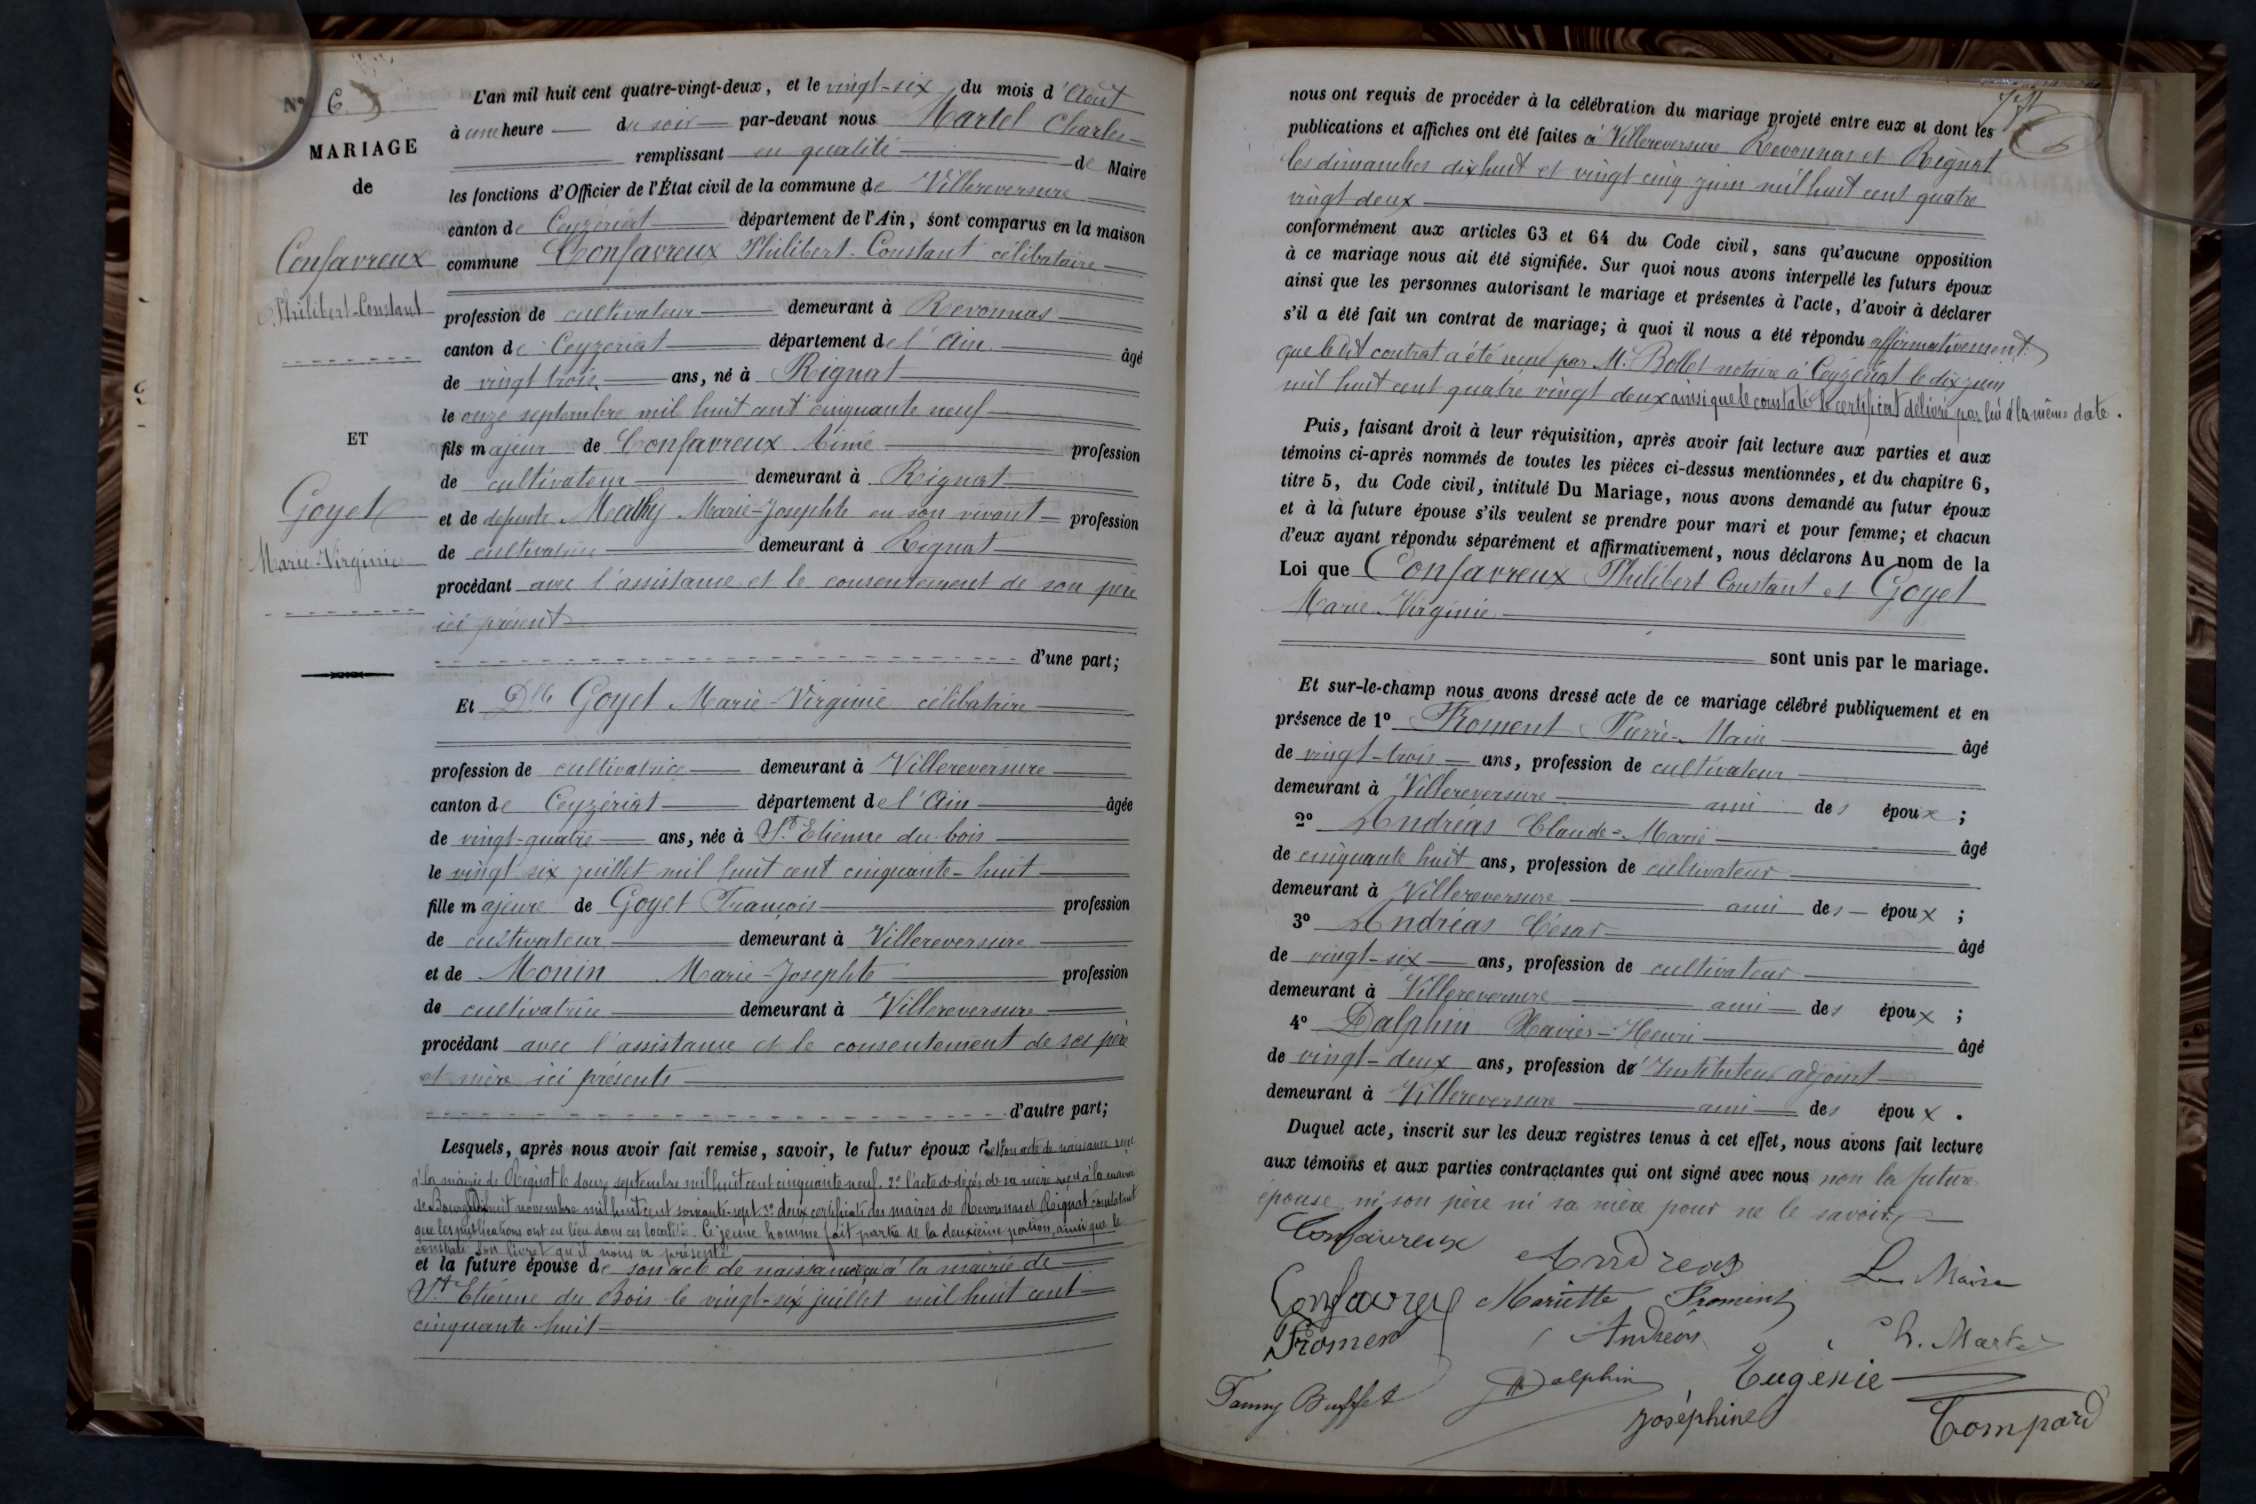 N° 6
MARIAGE
de
Confavreux
Philibert-Constant
ET
Goyet
Marie-Virginie
L'an mil huit cent quatre-vingt-deux, et le vingt-six du mois d'Août
à une heure du soir par-devant nous Martel Charles
remplissant en qualité de Maire
les fonctions d'Officier de l'État civil de la commune de Villereversure
canton de Ceyzériat département de l'Ain, sont comparus en la maison
commune Confavreux Philibert-Constant célibataire
profession de cultivateur demeurant à Revonnas
canton de Ceyzériat département de l'Ain âgé
de vingt trois ans, né à Rignat
le onze septembre mil huit cent cinquante neuf
fils majeur de Confavreux Aimé profession
de cultivateur demeurant à Rignat
et de defunte Mathy Marie-Josephte en son vivant profession
de cultivatrice demeurant à Rignat
procédant avec l'assistance et le consentement de son père
ici présent
d'une part;
Et Dlle Goyet Marie-Virginie célibataire
profession de cultivatrice demeurant à Villereversure
canton de Ceyzériat département de l'Ain âgée
de vingt-quatre ans, née à St Etienne du bois
le vingt six juillet mil huit cent cinquante-huit
fille majeure de Goyet François profession
de cultivateur demeurant à Villereversure
et de Monin Marie-Josephte profession
de cultivatrice demeurant à Villereversure
procédant avec l'assistance et le consentement de ses père
et mère ici présents
d'autre part;
Lesquels, après nous avoir fait remise, savoir, le futur époux de son acte de naissance reçu
à la mairie de Rignat le douze septembre mil huit cent cinquante neuf. 2° l'acte de décès de sa mère reçu à la mairie
de Bourg huit novembre mil huit cent soixante-sept. 3° deux certificats des maires de Revonnas et Rignat constatant
que les publications ont eu lieu dans ces localités. Ce jeune homme fait partie de la deuxième portion, ainsi que le
constate son livret qu'il nous a présenté
et la future épouse de son acte de naissance reçu à la mairie de
St Etienne du Bois le vingt-six juillet mil huit cent
cinquante-huit
nous ont requis de procéder à la célébration du mariage projeté entre eux et dont les
publications et affiches ont été faites à Villereversure Revonnas et Rignat
les dimanches dix huit et vingt cinq juin mil huit cent quatre
vingt deux
conformément aux articles 63 et 64 du Code civil, sans qu'aucune opposition
à ce mariage nous ait été signifiée. Sur quoi nous avons interpellé les futurs époux
ainsi que les personnes autorisant le mariage et présentes à l'acte, d'avoir à déclarer
s'il a été fait un contrat de mariage; à quoi il nous a été répondu affirmativement
que le dit contrat a été reçu par Me Bollet notaire à Ceyzériat le dix juin
mil huit cent quatre vingt deux ainsi que le constate le certificat délivré par lui à la même date.
Puis, faisant droit à leur réquisition, après avoir fait lecture aux parties et aux
témoins ci-après nommés de toutes les pièces ci-dessus mentionnées, et du chapitre 6,
titre 5, du Code civil, intitulé Du Mariage, nous avons demandé au futur époux
et à la future épouse s'ils veulent se prendre pour mari et pour femme; et chacun
d'eux ayant répondu séparément et affirmativement, nous déclarons Au nom de la
Loi que Confavreux Philibert Constant et Goyet
Marie-Virginie
sont unis par le mariage.
Et sur-le-champ nous avons dressé acte de ce mariage célébré publiquement et en
présence de 1° Froment Pierre-Marie âgé
de vingt-trois ans, profession de cultivateur
demeurant à Villereversure ami des époux;
2° Andréas Claude-Marie âgé
de cinquante huit ans, profession de cultivateur
demeurant à Villereversure ami des époux;
3° Andréas César âgé
de vingt-six ans, profession de cultivateur
demeurant à Villereversure ami des époux;
4° Dalphin Xavier-Henri âgé
de vingt-deux ans, profession d'Instituteur adjoint
demeurant à Villereversure ami des époux.
Duquel acte, inscrit sur les deux registres tenus à cet effet, nous avons fait lecture
aux témoins et aux parties contractantes qui ont signé avec nous non la future
épouse, ni son père ni sa mère pour ne le savoir.
Confavreux
Andreas
Le Maire
Confavreux
Mariette Froment
Froment
Andréas
Ch. Martel
Dalphin
Eugénie
Fanny Buffet
Joséphine
Compard